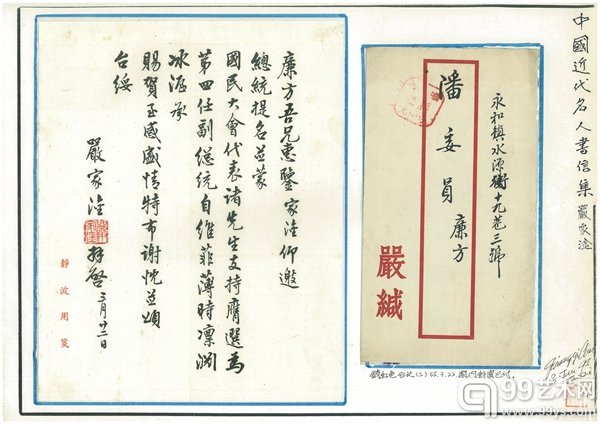 中國近代名人書信集 嚴家淦
永和鎮水源街十九巷三號
潘委員廉方
嚴緘
廉方吾兄惠鑒 家淦仰邀
總統提名並蒙
國民大會代表諸先生支持膺選為
第四任副總統自維菲薄時凜淵
冰渥承
賜賀至感盛情特布謝忱並頌
台綏
嚴家淦 拜啓 三月廿二日
靜波用箋
(二) 55.3.22. 國內郵資已付.
99艺术网
www.99ys.com